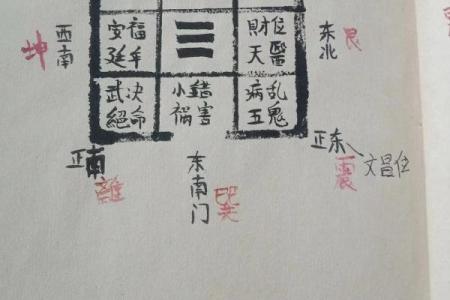 坤
西南
安福
延年
財位
天醫
东北
艮
武决
絕命
小錯
禍害
病乱
五鬼
正南
離
东南门
巽
正东
震
文昌位